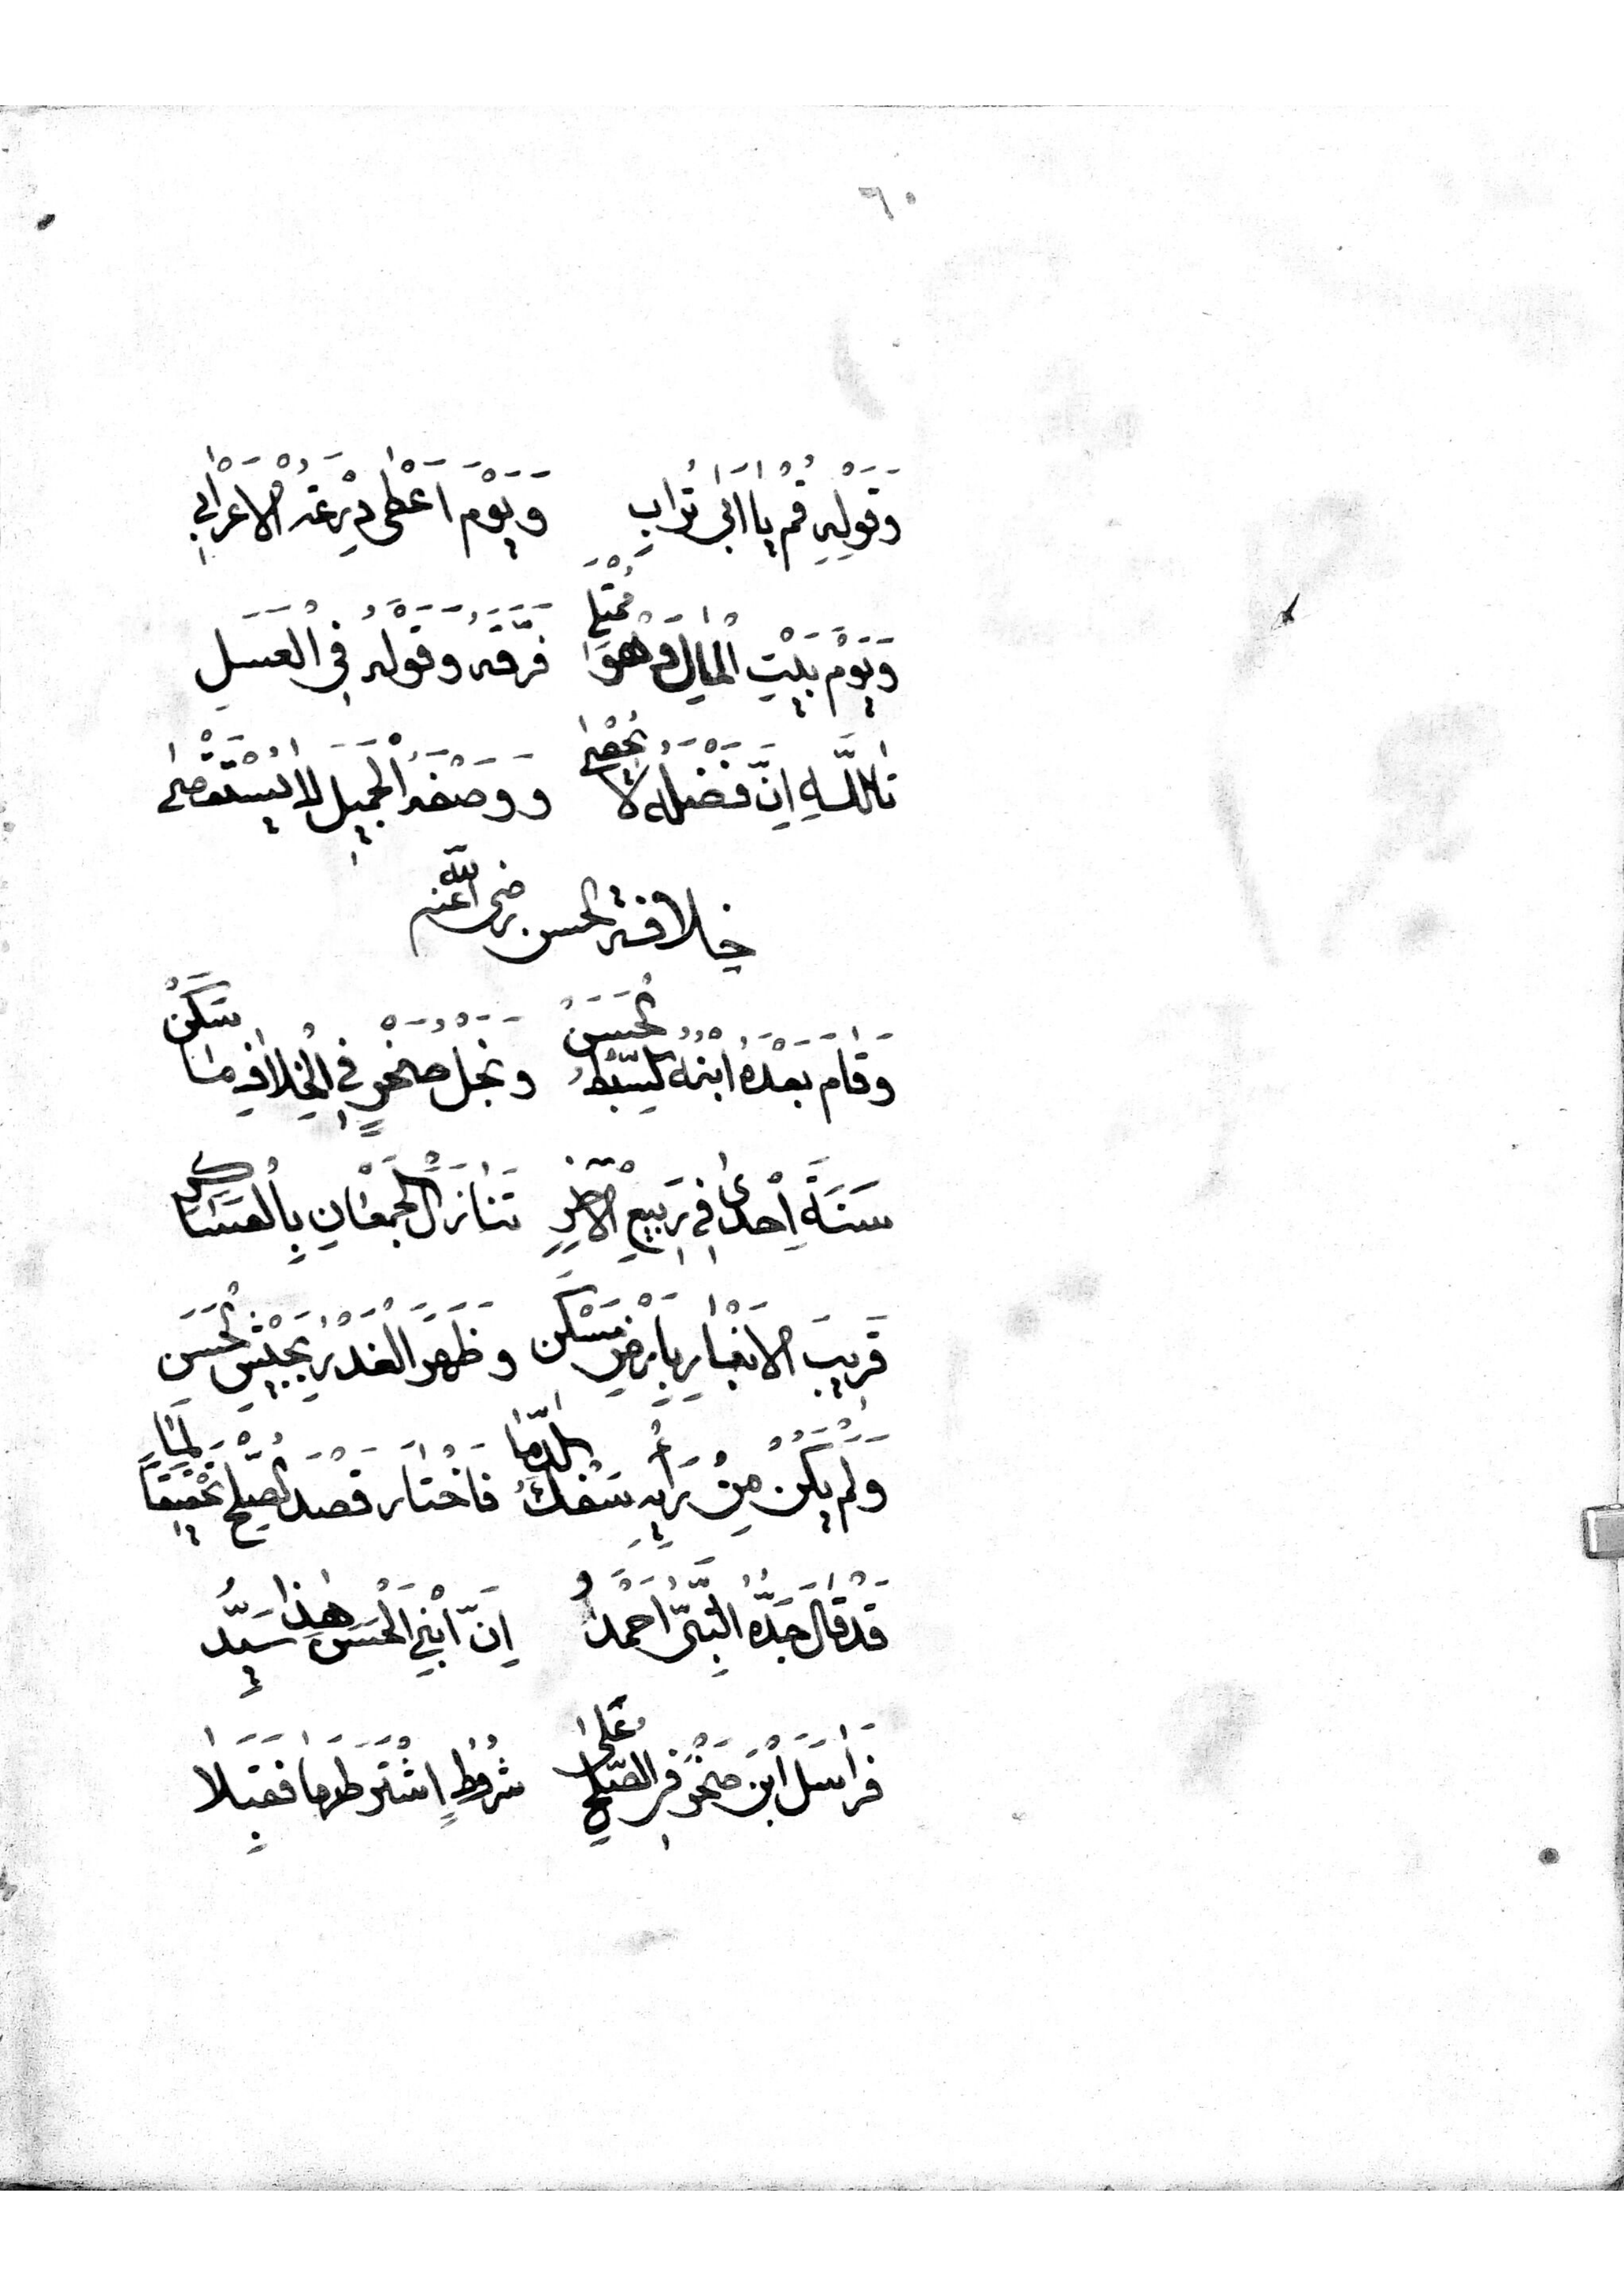 ٦٠
وَقَوْلِهِ قُمْ يَا اَبٰى تُرَابِ وَيَوْمَ اَعْطٰى دِرْعَهُ الْاَعْرَابِي
وَيَوْمَ بَيْتِ الْمَالِ وَهْوَ مُمْتَلِي فَرَّقَهُ وَقَوْلُهُ فِي الْعَسَلِ
تَاللّٰهِ اِنَّ فَضْلَهُ لَا يُحْصٰى وَوَصْفَهُ الْجَمِيلَ لَا يُسْتَقْصٰى
خلافة الحسن رضى الله عنه
وَقَامَ بَعْدَهُ ابْنُهُ السِّبْطُ الْحَسَنْ وَنَجْلُ صَخْرٍ فِي الْخِلَافِ مَا سَكَنْ
سَنَةَ اِحْدٰى فِي رَبِيعِ الْآخِرِ تَنَازَلَ الْجَمْعَانِ بِالْعَسَاكِرِ
قَرِيبَ الْاَنْبَارِ بِاَرْضِ مَسْكَنِ وَظَهَرَ الْغَدْرُ بِجَيْشِ الْحَسَنِ
وَلَمْ يَكُنْ مِنْ رَأْيِهِ سَفْكُ الدِّمَا فَاخْتَارَ قَصْدَ الصُّلْحِ تَحْقِيقًا لِمَا
قَدْ قَالَ جَدُّهُ النَّبِىُّ اَحْمَدُ اِنَّ ابْنِي الْحَسَنَ هٰذَا سَيِّدُ
فَرَاسَلَ ابْنَ صَخْرٍ فِي الصُّلْحِ عَلٰى شُرُوطٍ اِشْتَرَطَهَا فَقَبِلَا